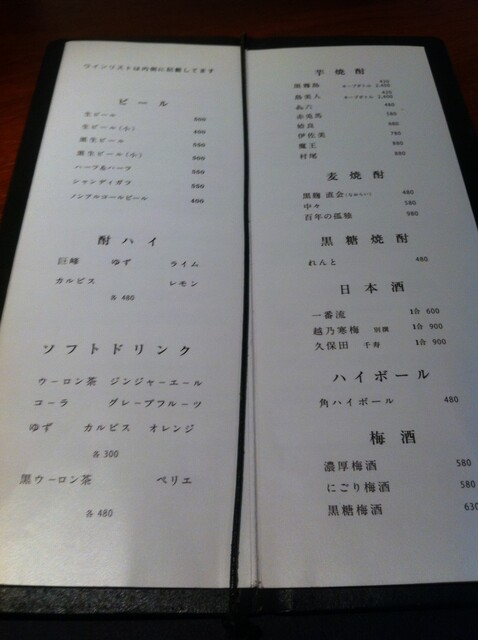 ワインリストは内側に記載してます
ビール
生ビール 500
生ビール(小) 400
黒生ビール 550
黒生ビール(小) 500
ハーフ&ハーフ 550
シャンディガフ 550
ノンアルコールビール 400
酎ハイ
巨峰 ゆず ライム
カルピス レモン
各 480
ソフトドリンク
ウーロン茶 ジンジャーエール
コーラ グレープフルーツ
ゆず カルピス オレンジ
各 300
黒ウーロン茶 ペリエ
各 480
芋焼酎
黒霧島 420
キープボトル 2,400
島美人 420
キープボトル 2,400
紅六 480
赤兎馬 580
蛤良 480
伊佐美 780
魔王 880
村尾 880
麦焼酎
黒麹 直会(なおらい) 480
中々 580
百年の孤独 980
黒糖焼酎
れんと 480
日本酒
一番流 1合 600
越乃寒梅 別撰 1合 900
久保田 千寿 1合 900
ハイボール
角ハイボール 480
梅酒
濃厚梅酒 580
にごり梅酒 580
黒糖梅酒 630